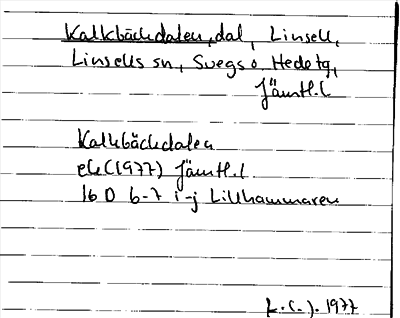 Kalkbäckdalen, dal, Linsell,
Linsells sn, Svegs o Hede tg,
Jämtl.l
Kalkbäckdalen
ek (1977) Jämtl.l
16 D 6-7 i-j Lillhammaren
1977